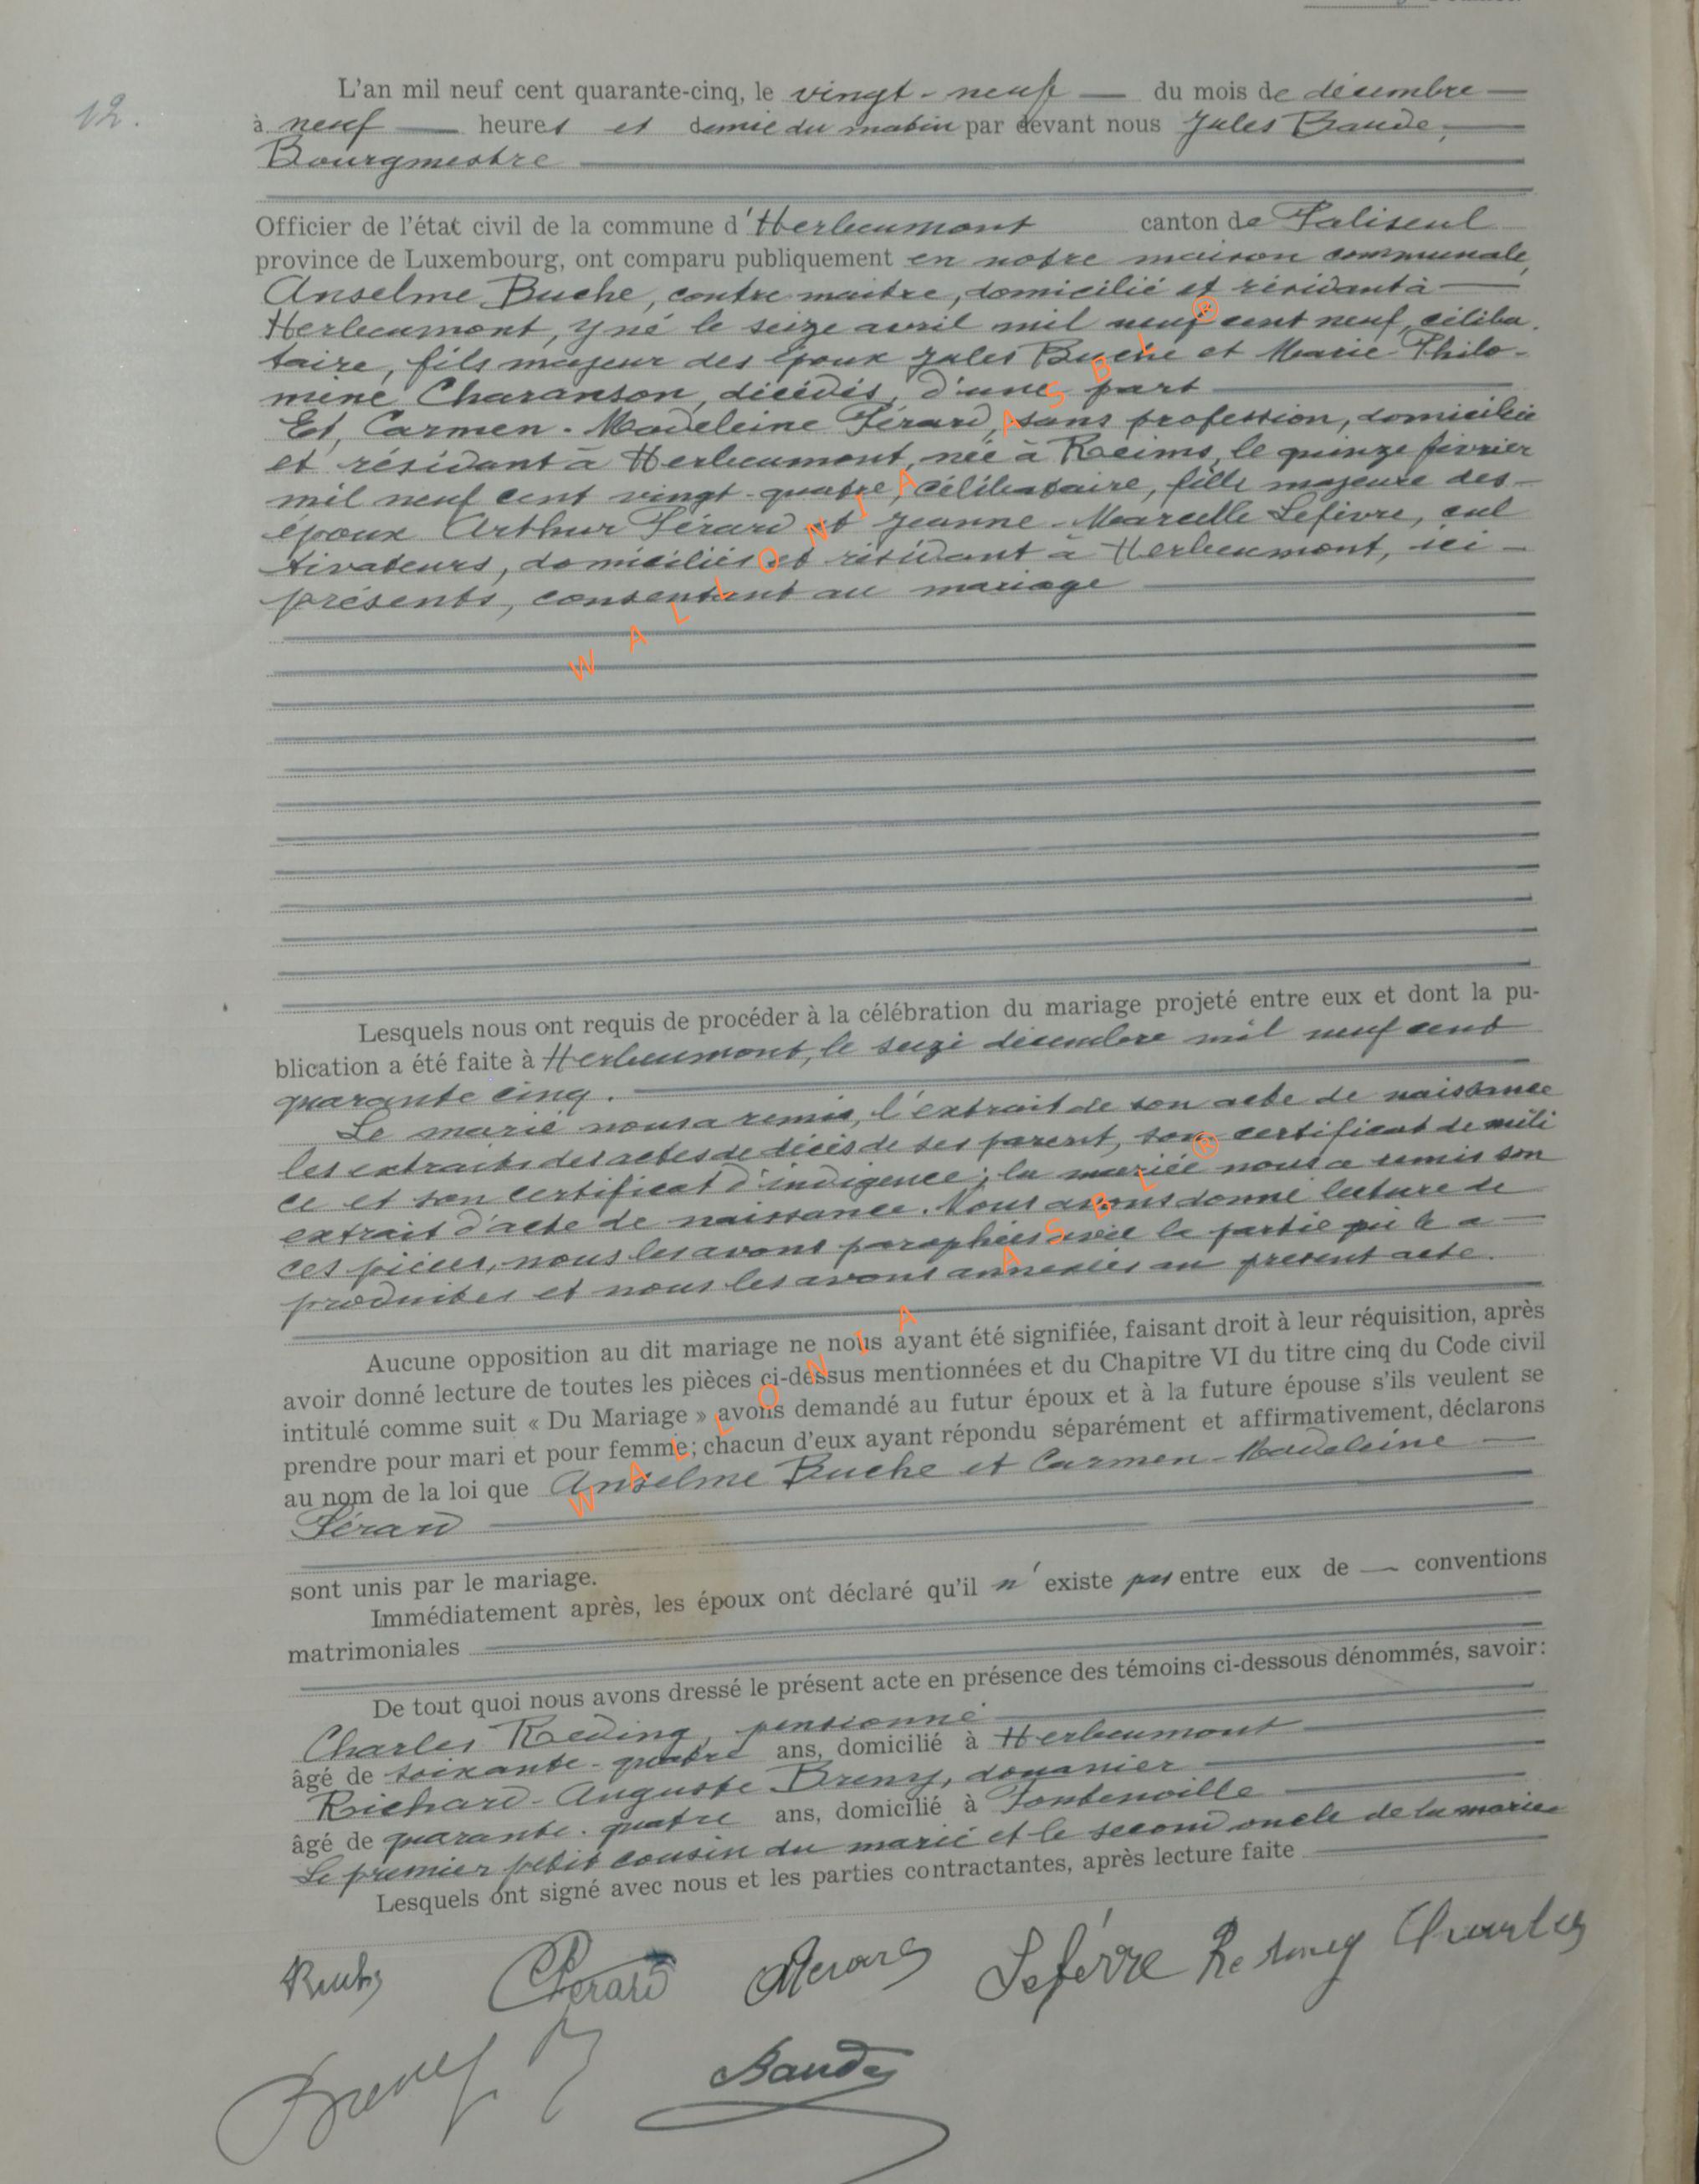 12.
L'an mil neuf cent quarante-cinq, le vingt-neuf — du mois de décembre —
à neuf — heures et demie du matin par devant nous Jules Baude,
Bourgmestre
Officier de l'état civil de la commune d'Herbeumont canton de Paliseul
province de Luxembourg, ont comparu publiquement en notre maison communale,
Anselme Buche, contre maître, domicilié et résidant à —
Herbeumont, y né le seize avril mil neuf cent neuf, céliba-
taire, fils majeur des époux Jules Buche et Marie-Philo-
mène Charanson, décédés, d'une part —
Et, Carmen-Madeleine Férard, sans profession, domiciliée
et résidant à Herbeumont, née à Reims, le quinze février
mil neuf cent vingt-quatre, célibataire, fille majeure des —
époux Arthur Férard et Jeanne-Marcelle Lefèvre, cul
tivateurs, domiciliés et résidant à Herbeumont, ici —
présents, consentant au mariage —
Lesquels nous ont requis de procéder à la célébration du mariage projeté entre eux et dont la pu-
blication a été faite à Herbeumont, le seize décembre mil neuf cent
quarante cinq. —
Le marié nous a remis, l'extrait de son acte de naissance
les extraits des actes de décès de ses parent, son certificat de mili
ce et son certificat d'indigence; la mariée nous a remis son
extrait d'acte de naissance. Nous avons donné lecture de
ces pièces, nous les avons paraphées avec la partie qui le a —
produites et nous les avons annexées au présent acte.
Aucune opposition au dit mariage ne nous ayant été signifiée, faisant droit à leur réquisition, après
avoir donné lecture de toutes les pièces ci-dessus mentionnées et du Chapitre VI du titre cinq du Code civil
intitulé comme suit « Du Mariage » avons demandé au futur époux et à la future épouse s'ils veulent se
prendre pour mari et pour femme; chacun d'eux ayant répondu séparément et affirmativement, déclarons
au nom de la loi que Anselme Buche et Carmen-Madeleine —
Férard —
sont unis par le mariage.
Immédiatement après, les époux ont déclaré qu'il n'existe pas entre eux de — conventions
matrimoniales
De tout quoi nous avons dressé le présent acte en présence des témoins ci-dessous dénommés, savoir:
Charles Reding, pensionné —
âgé de soixante-quatre ans, domicilié à Herbeumont —
Richard-Auguste Breny, douanier —
âgé de quarante-quatre ans, domicilié à Fontenoille —
Le premier petit cousin du marié et le second oncle de la mariée
Lesquels ont signé avec nous et les parties contractantes, après lecture faite
Lefèvre Charles
Breny
Baude
WALLONIA ASBL®
WALLONIA ASBL®